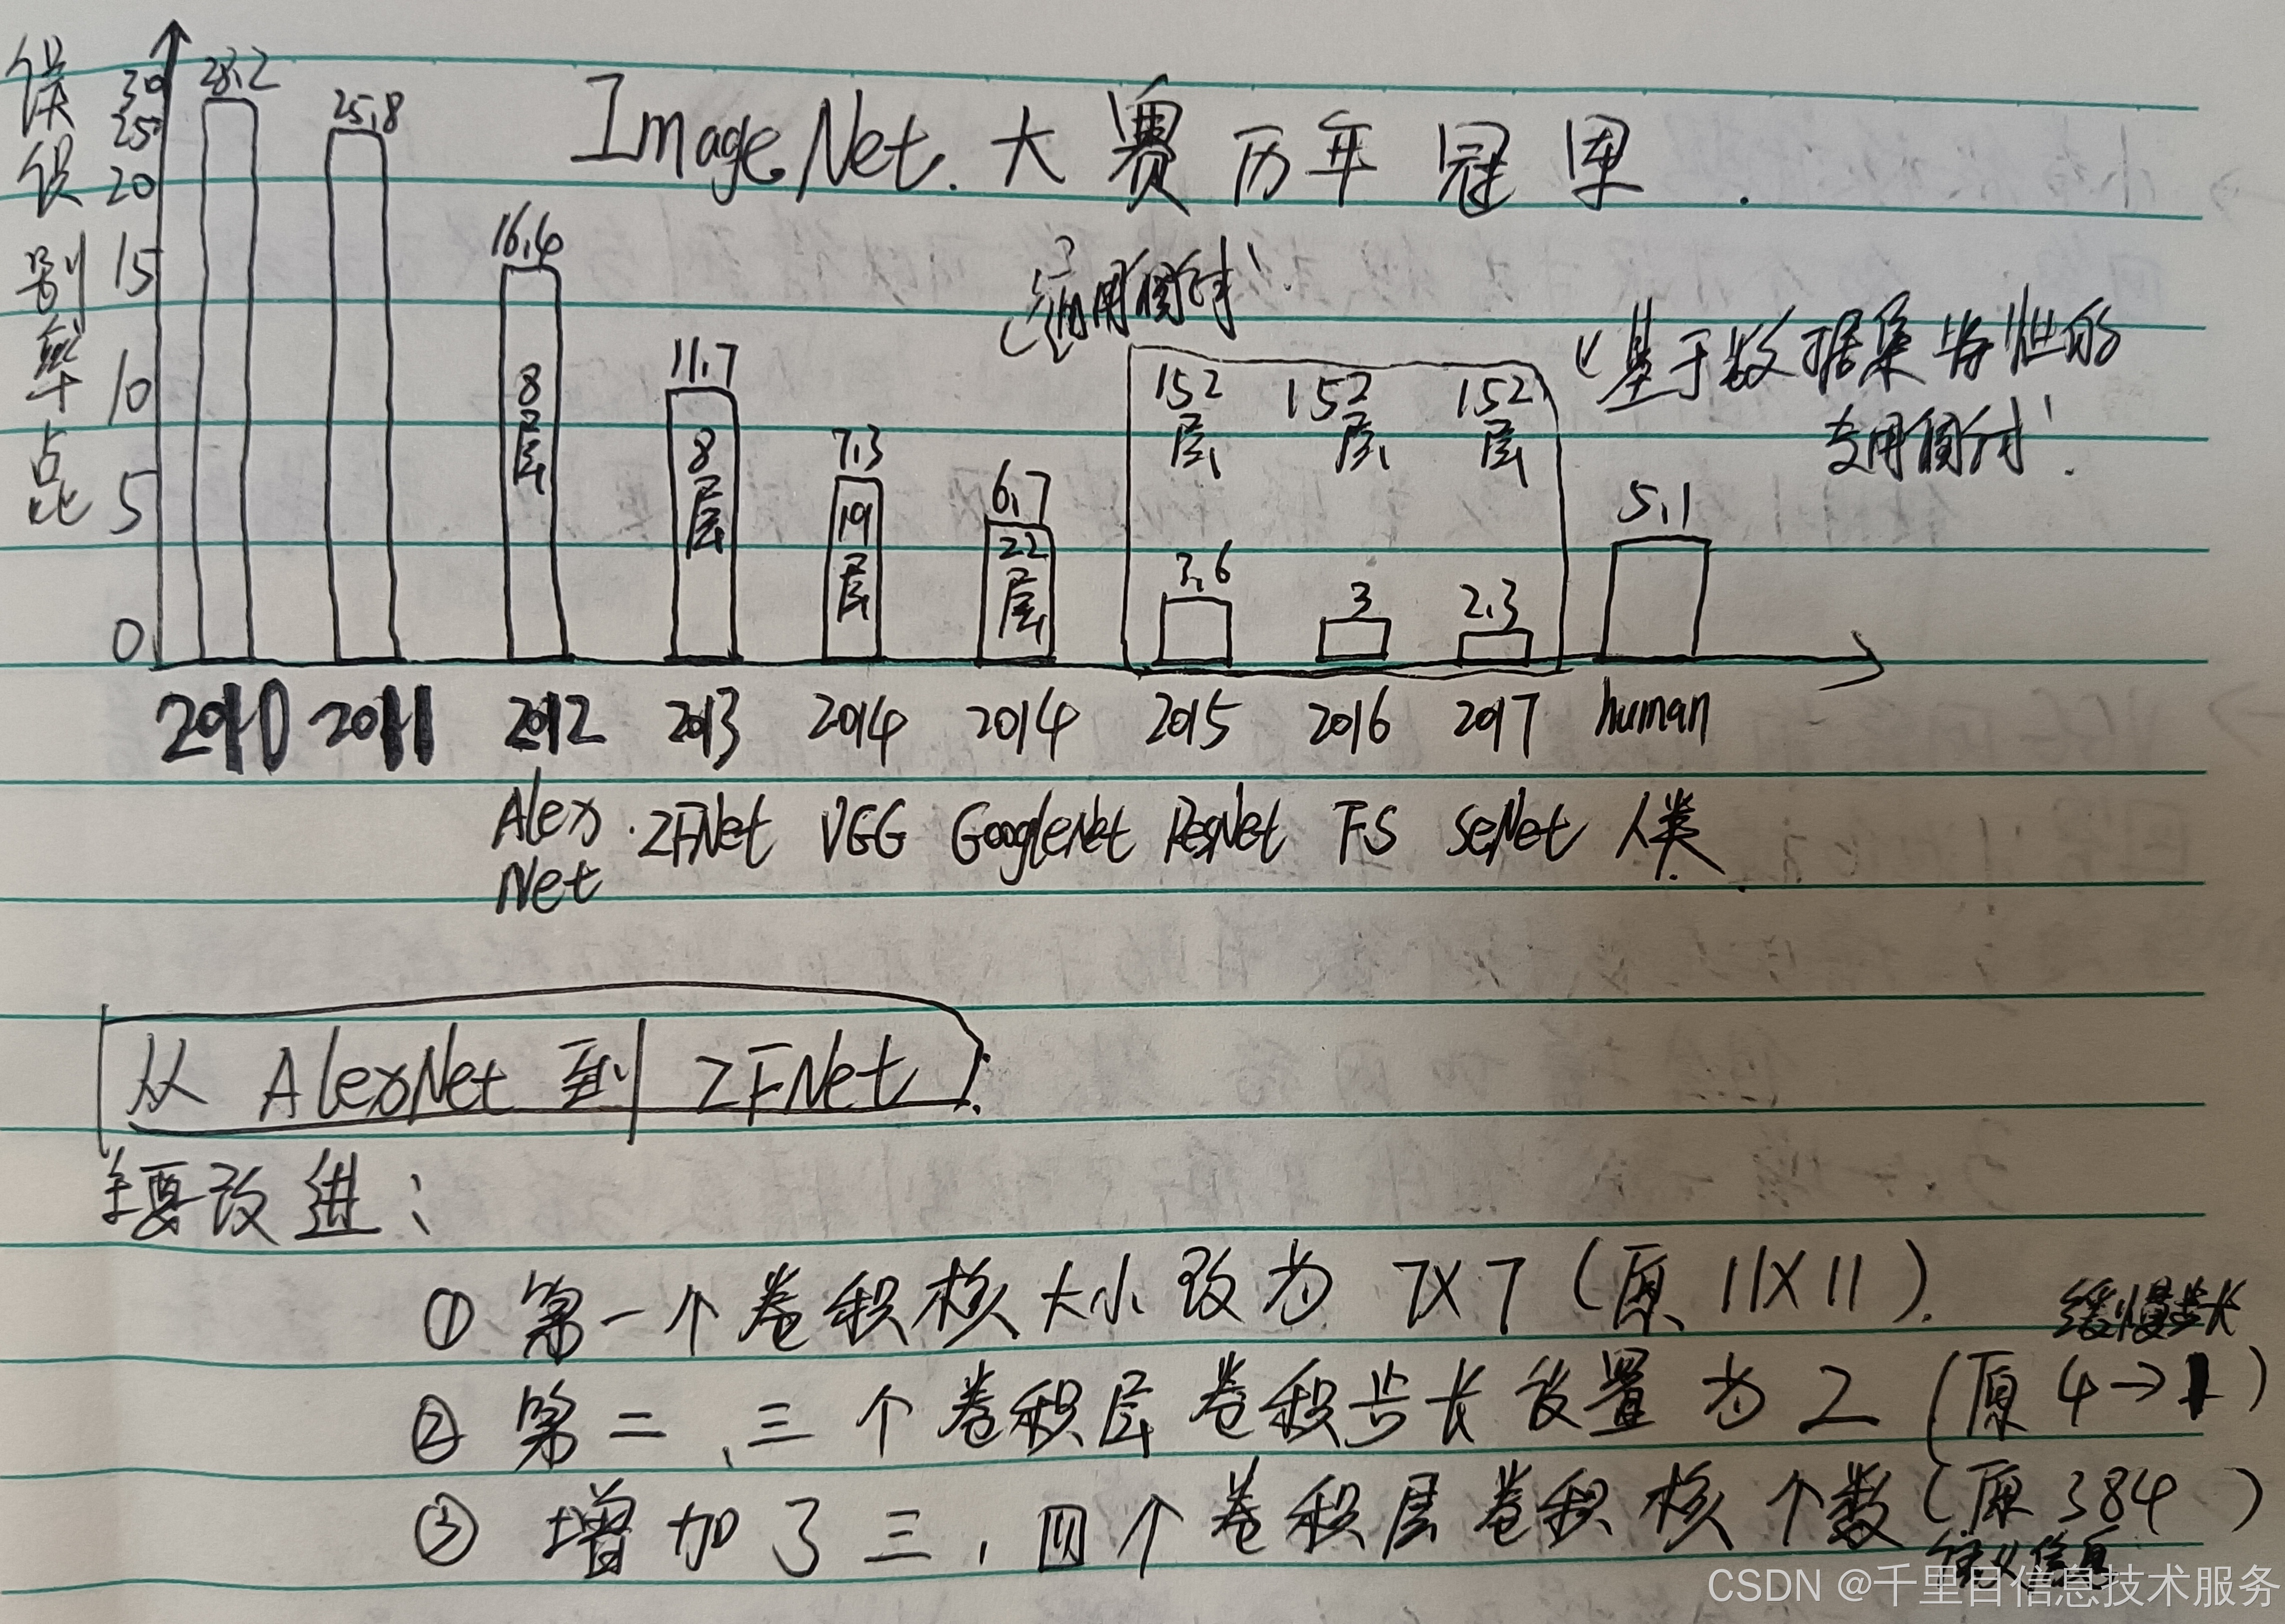 ImageNet.大赛历年冠军.
误识别率点比
30
25
20
15
10
5
0
28.2
25.8
16.4
8层
11.7
8层
7.3
19层
6.7
22层
152层 152层 152层
3.6
3
2.3
5.1
“基于数据集特性的
2010 2011 2012 2013 2014 2014 2015 2016 2017 human
Alex ZFNet VGG GoogleNet ResNet FS SeNet 人类
Net
从 AlexNet 到 ZFNet
主要改进:
① 第一个卷积核大小改为 7X7 (原 11X11).
缓慢步长
② 第二、三个卷积层卷积步长设置为2 (原 4→1)
③ 增加了三,四个卷积层卷积核个数(原384 )
语义信息
CSDN @千里目信息技术服务